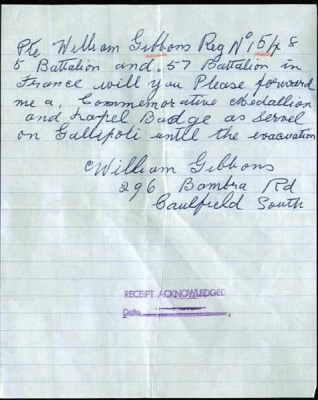 Pte William Gibbons Reg No 1548
5 Battalion and 57 Battalion in
France will you Please forward
me a, Commemorative Medallion
and Lapel Badge as Served
on Gallipoli until the evacuation
William Gibbons
296 Bambra Rd
Caulfield South
RECEIPT ACKNOWLEDGED
Date